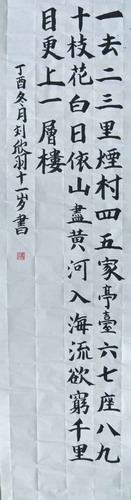 一去二三里煙村四五家亭臺六七座八九
十枝花白日依山盡黄河入海流欲窮千里
目更上一層樓
丁酉冬月刘欣羽十一岁書